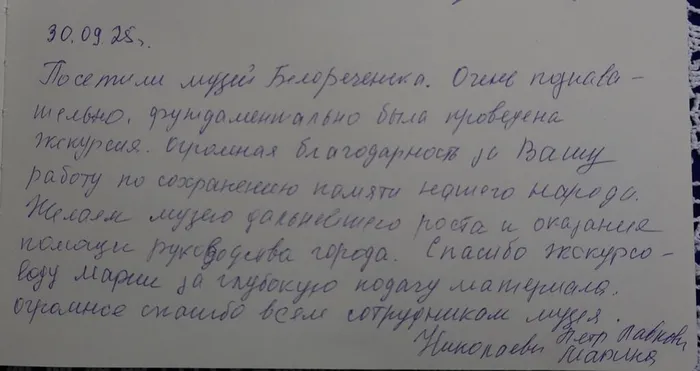 30.09.25г.
Посетили музей Белореченска. Очень познава-
тельно, фундаментально была проведена
экскурсия. Огромная благодарность за Вашу
работу по сохранению памяти нашего народа.
Желаем музею дальнейшего роста и оказания
помощи руководства города. Спасибо экскурсо-
воду Марии за глубокую подачу материала.
огромное спасибо всем сотрудникам музея.
Николаевы Петр
Марина